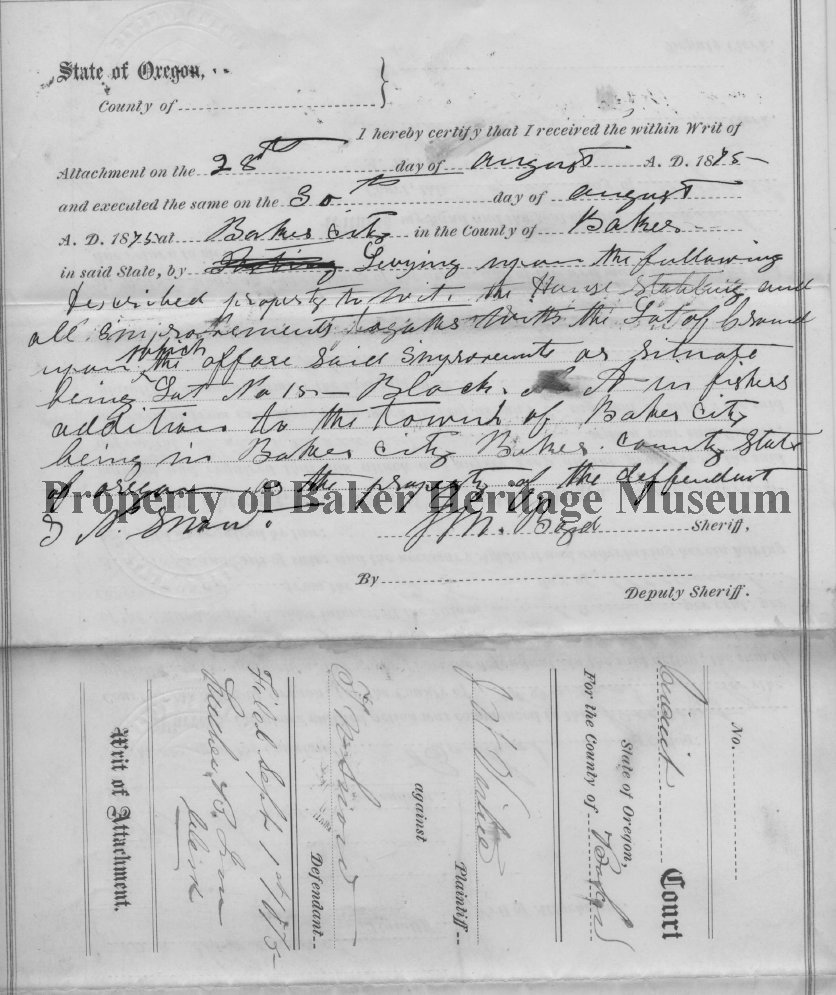 State of Oregon,
County of
I hereby certify that I received the within Writ of
Attachment on the 28th day of August A. D. 1875
and executed the same on the 30th day of August
A. D. 1875 at Baker City in the County of Baker
in said State, by Levying upon the following
Described property to wit. the House Stabling and
all improvements togather with the Lot of Ground
upon which the affore said Improvements as Situate
being Lot No 15 Block A in fishers
addition to the town of Baker City
being in Baker City Baker County State
of oregon as the property of the deffendant
Snow.
J M. Boyd Sheriff,
By
Deputy Sheriff.
Property of Baker Heritage Museum
No.
Circuit Court
State of Oregon,
For the County of Baker
J W Virtue
Plaintiff
against
Snow
Defendant
Filed Sept 1st 1875
Clerk
Writ of Attachment.